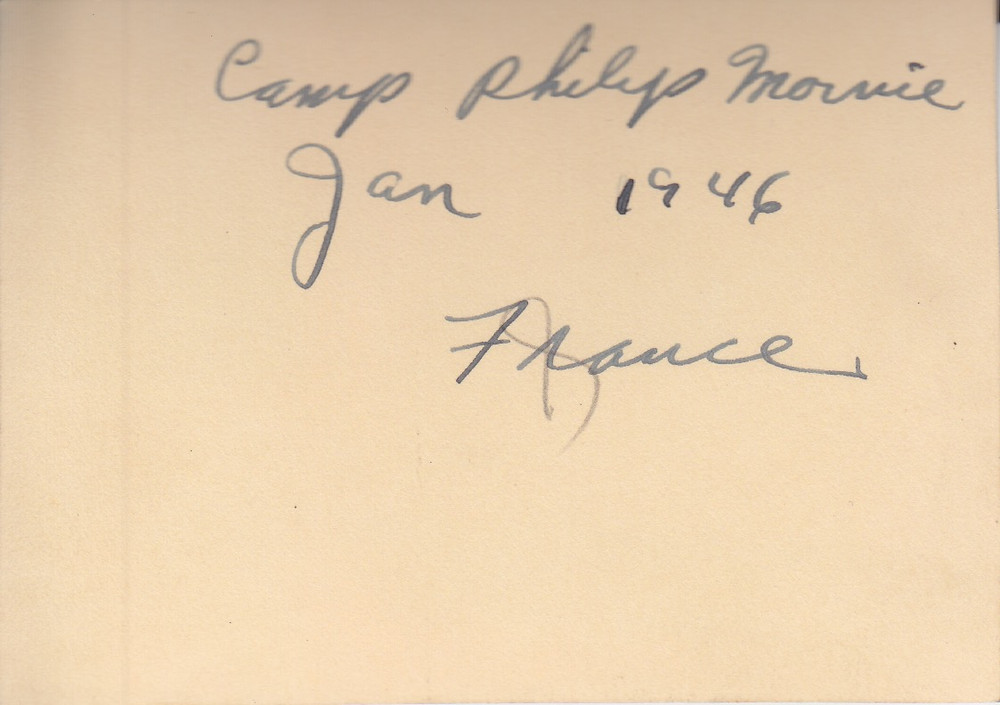 Camp Philip Morrie
Jan 1946
France